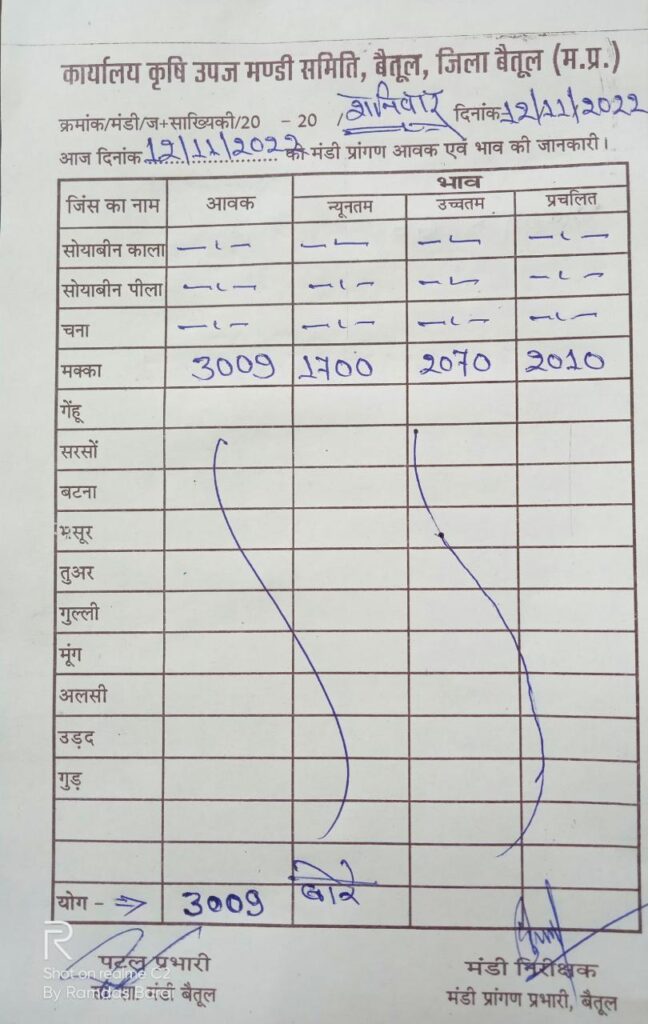 कार्यालय कृषि उपज मण्डी समिति, बैतूल, जिला बैतूल (म.प्र.)
क्रमांक/मंडी/ज+साख्यिकी/20 - 20 / शनिवार दिनांक 12/11/2022
आज दिनांक 12/11/2022 को मंडी प्रांगण आवक एवं भाव की जानकारी।
जिंस का नाम आवक भाव
न्यूनतम उच्चतम प्रचलित
सोयाबीन काला -ι- -ι- -ι- -ι-
सोयाबीन पीला -ι- -ι- -ι- -ι-
चना -ι- -ι- -ι- -ι-
मक्का 3009 1700 2070 2010
गेंहू
सरसों
बटना
मसूर
तुअर
गुल्ली
मूंग
अलसी
उड़द
गुड़
योग - ⇒ 3009 बोरे
पटल प्रभारी मंडी निरीक्षक
मंडी बैतूल मंडी प्रांगण प्रभारी, बैतूल
R
Shot on realme C2
By Ramdas